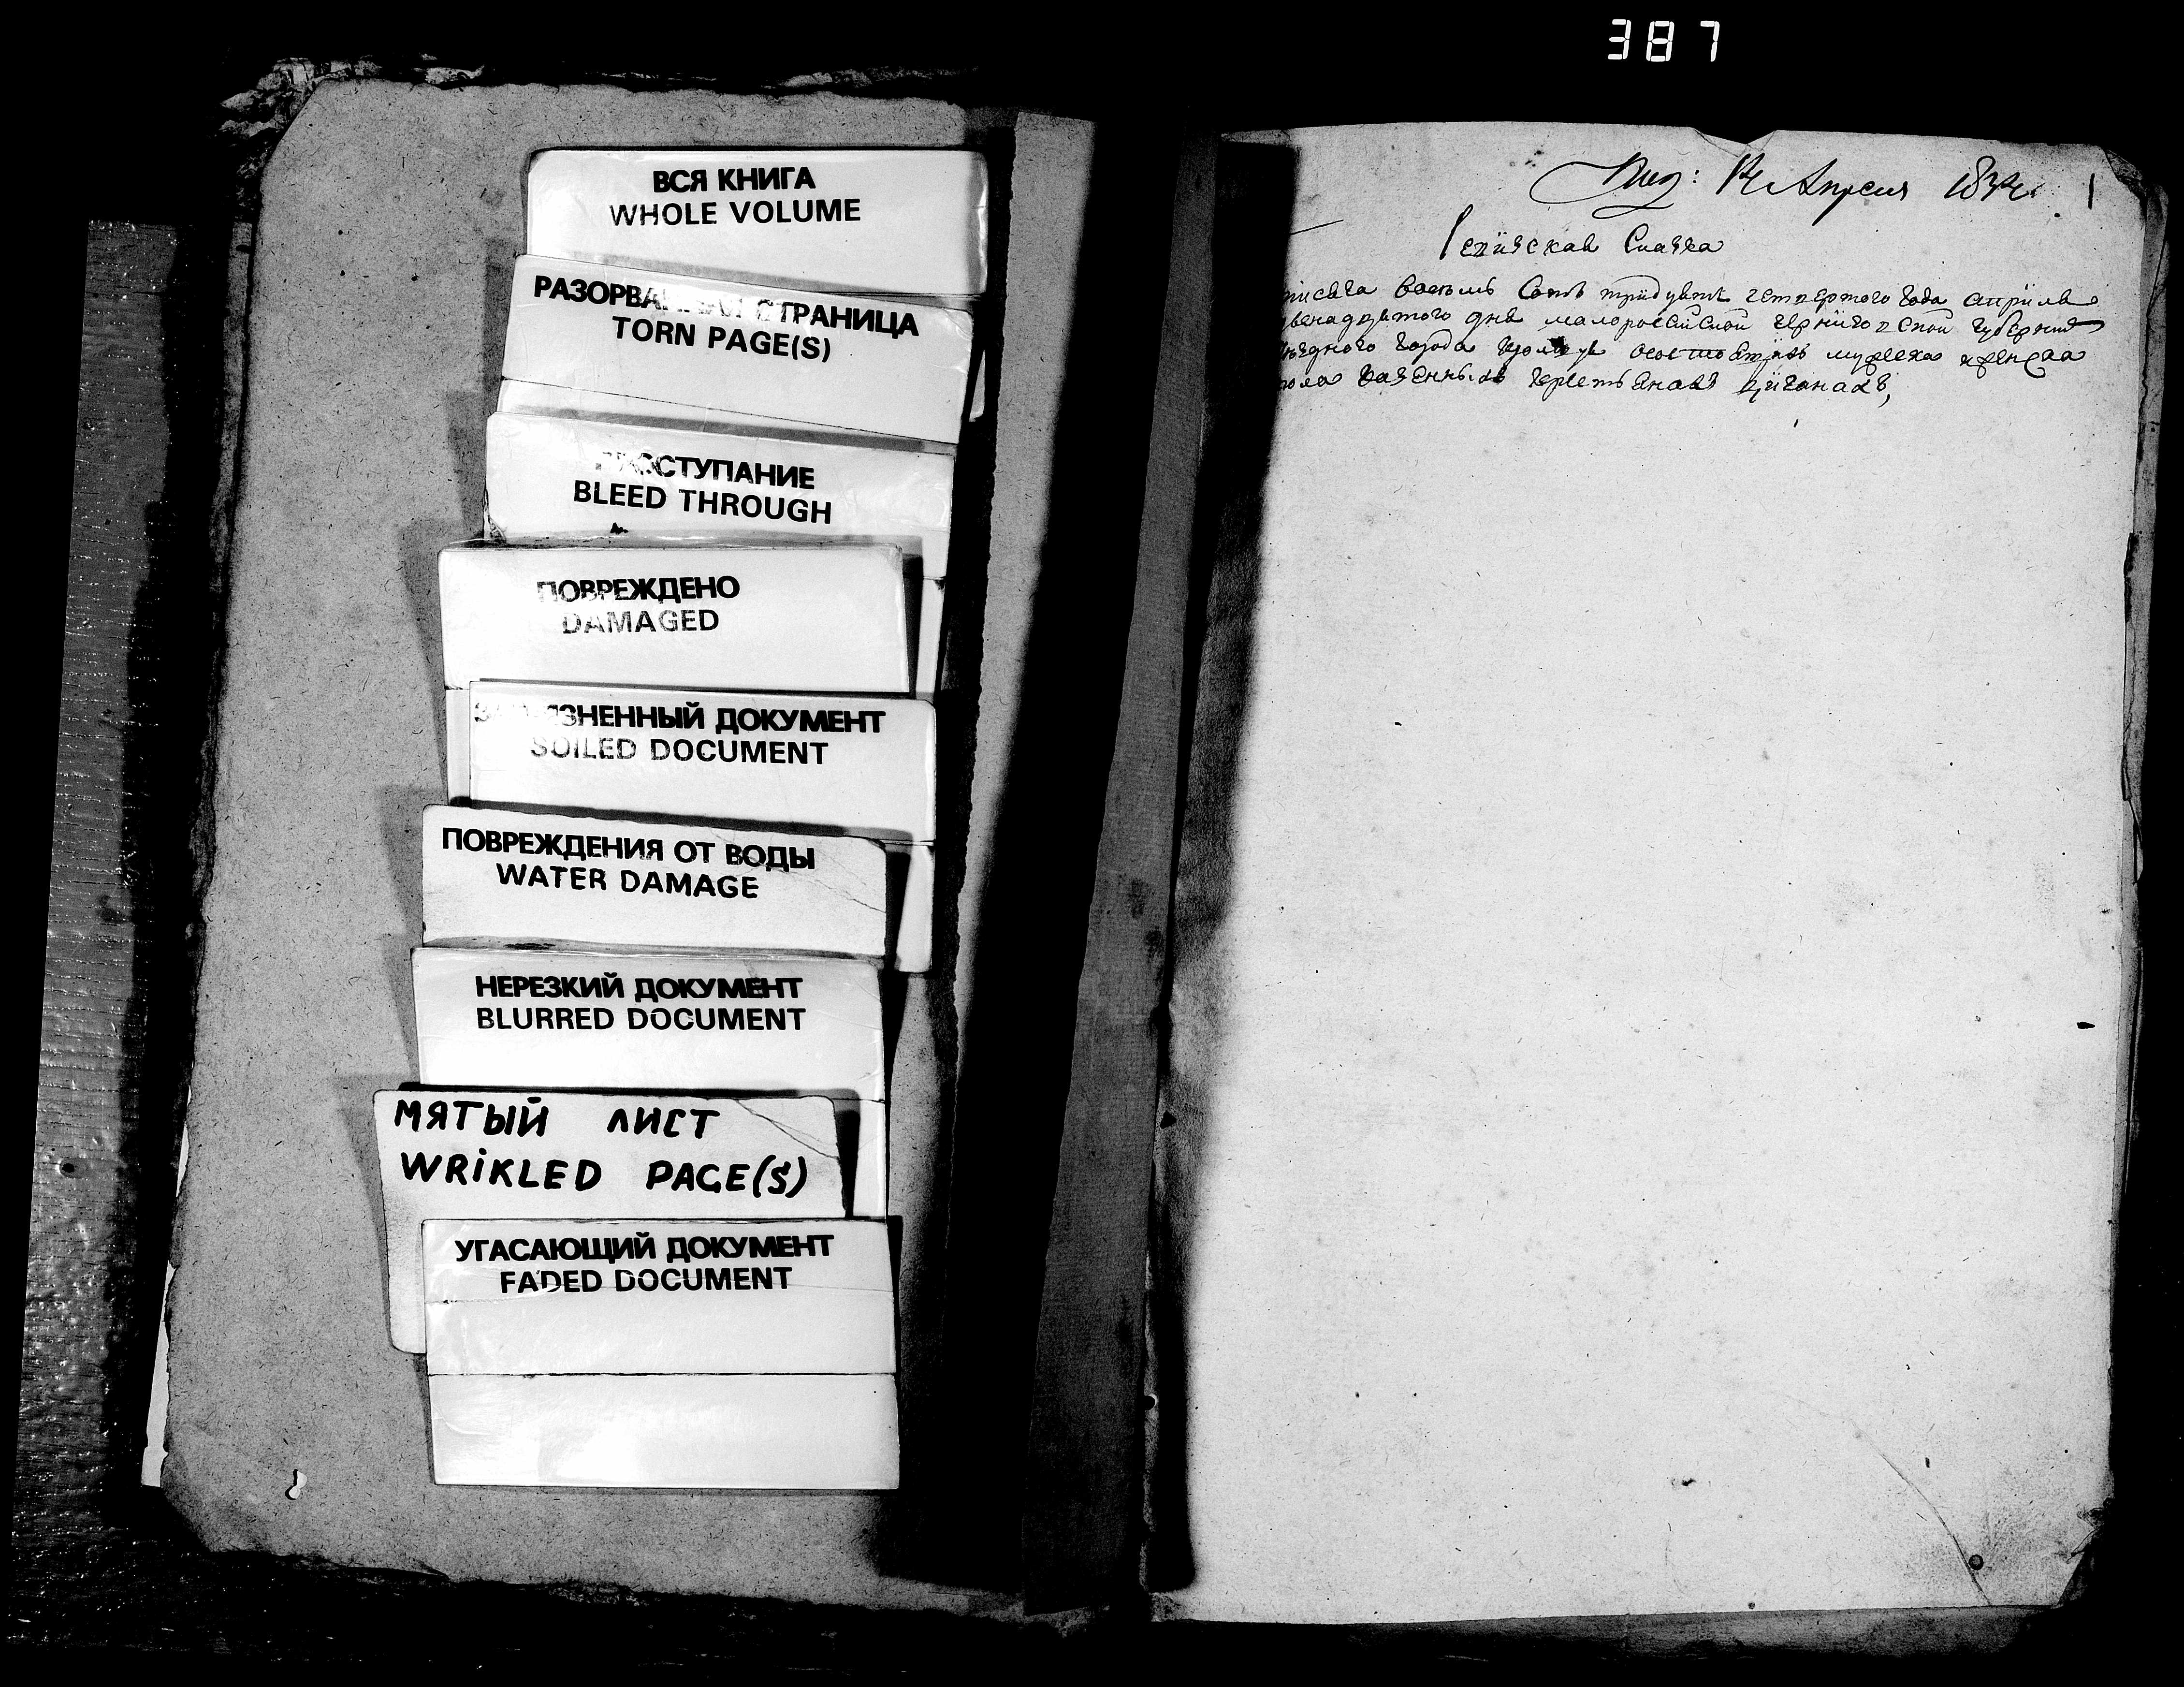 387
ВСЯ КНИГА
WHOLE VOLUME
СТРАНИЦА
TORN PAGE(S)
BLEED THROUGH
ПОВРЕЖДЕНО
DAMAGED
ДОКУМЕНТ
SOILED DOCUMENT
ПОВРЕЖДЕНИЯ ОТ ВОДЫ
WATER DAMAGE
НЕРЕЗКИЙ ДОКУМЕНТ
BLURRED DOCUMENT
МЯТЫЙ ЛИСТ
WRIKLED PAGE(S)
УГАСАЮЩИЙ ДОКУМЕНТ
FADED DOCUMENT
Апреля 1834 1
Сказка
восемь Сотъ тридцать четвертого года априля
дня малороссийской черниговской губернии
города мужеска женска
пола казенныхъ циганахъ,